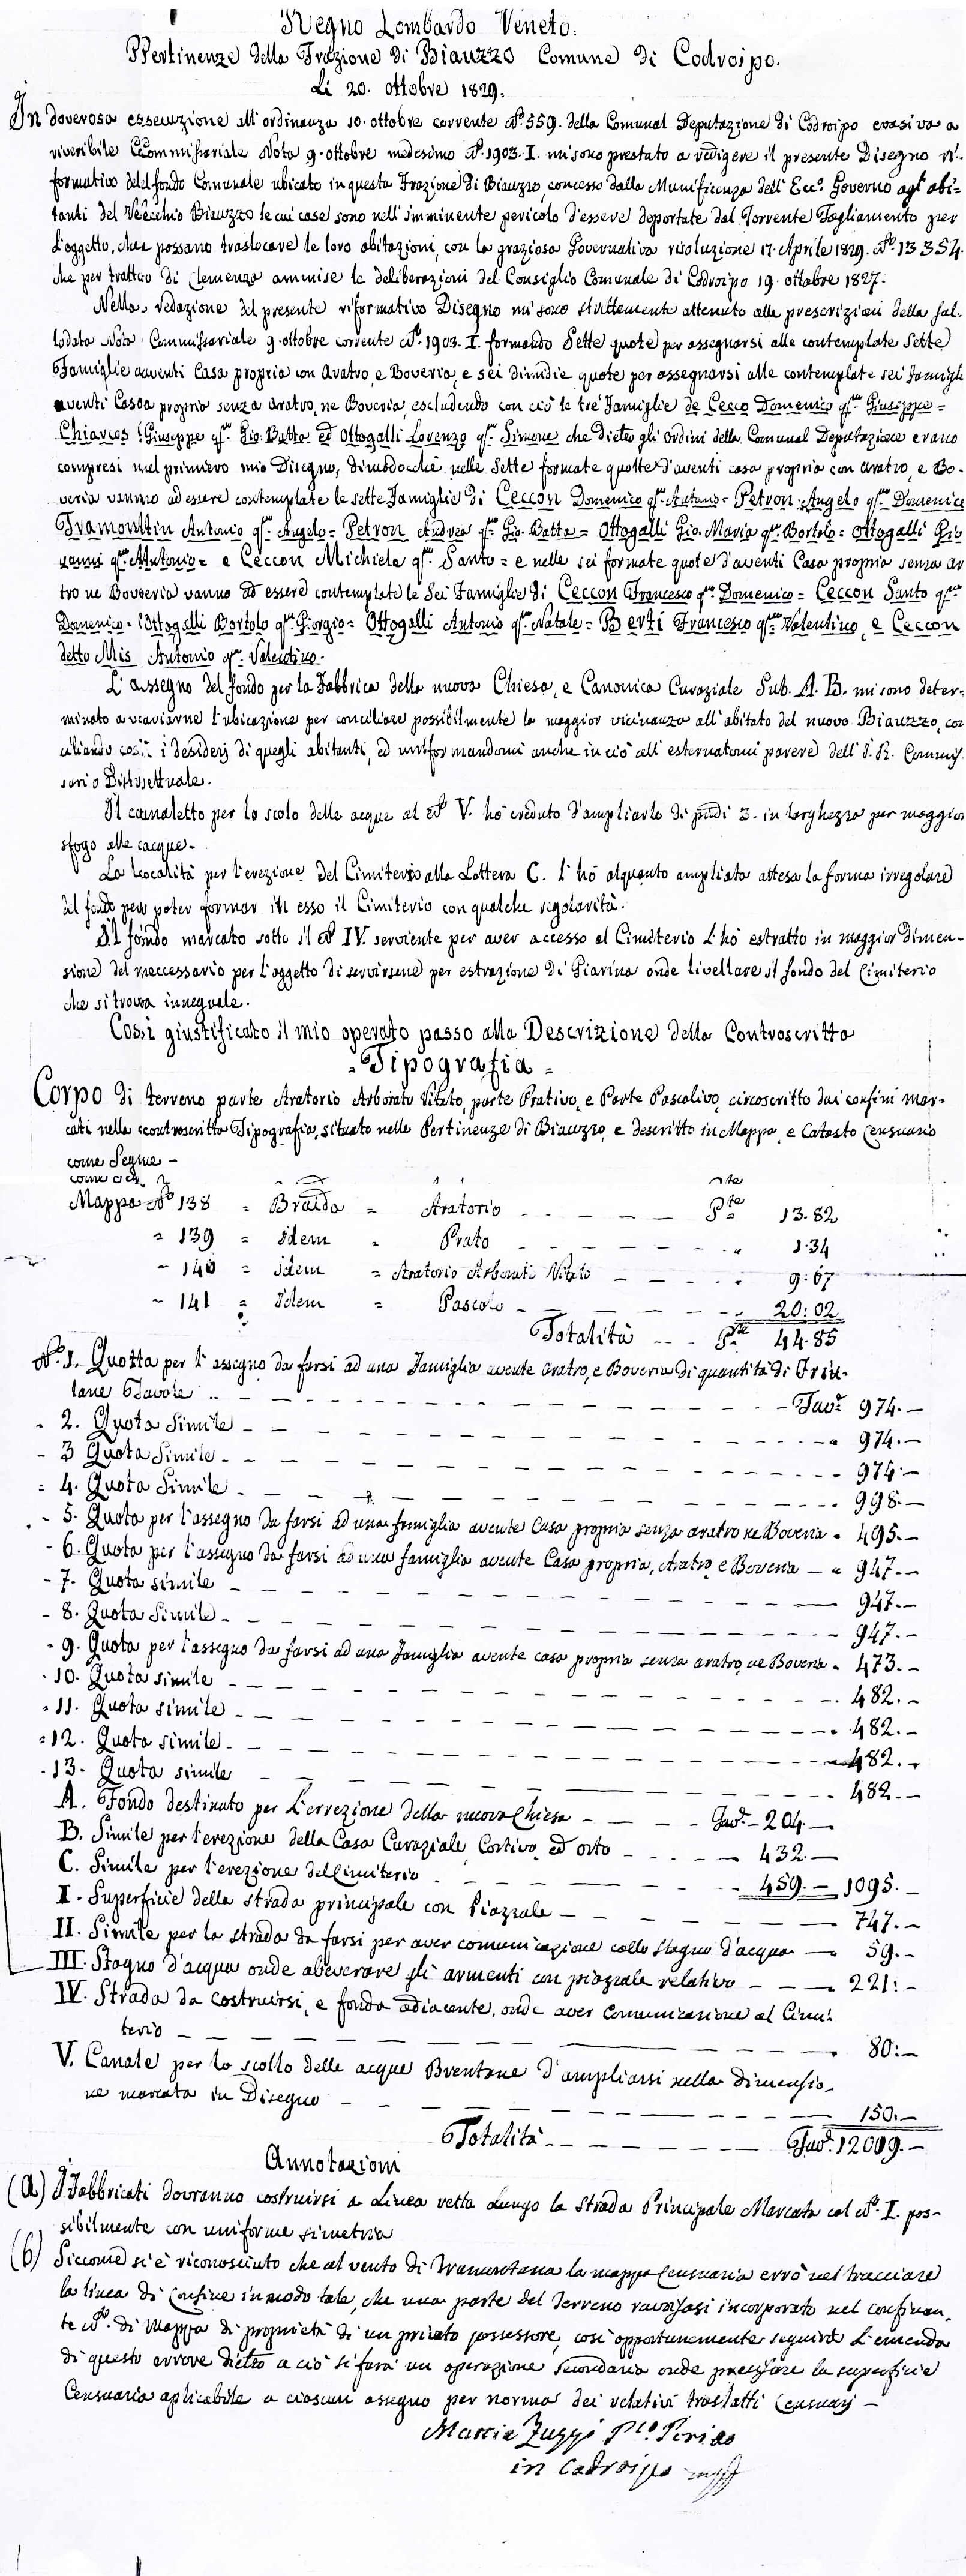 Regno Lombardo Veneto.
Pertinenze della Frazione di Biauzzo Comune di Codroipo.
Li 20. ottobre 1829.
In doverosa essecuzione all'ordinanza 10. ottobre corrente N.º 559. della Comunal Deputazione di Codroipo evasiva a
riveribile Commissariale Nota 9. ottobre medesimo N.º 1903. I. mi sono prestato a redigere il presente Disegno ri-
formativo del fondo Comunale ubicato in questa Frazione di Biauzzo, concesso dalla Munificenza dell'Ecc.º Governo agl'abi=
tanti del Vecchio Biauzzo le cui case sono nell'imminente pericolo d'essere deportate dal Torrente Tagliamento per
l'oggetto, che possano traslocare le loro abitazioni, con la graziosa Governativa risoluzione 17. Aprile 1829. N.º 13354.
che per trattivo di Clemenza ammise le deliberazioni del Consiglio Comunale di Codroipo 19. ottobre 1827.
Nella redazione del presente riformativo Disegno mi sono strettamente attenuto alle prescrizioni della sul-
lodata Nota Commissariale 9. ottobre corrente N.º 1903. I. formando Sette quote per assegnarsi alle contemplate Sette
Famiglie aventi Casa propria con Aratro, e Boveria, e sei dimidie quote per assegnarsi alle contemplate sei famigli
aventi Casa propria senza aratro, ne Boveria, escludendo con ciò le tre Famiglie de Cecco Domenico q.m Giuseppe=
Chiarcos Giuseppe q.m Gio. Batta= ed Ottogalli Lorenzo q.m Simone che dietro gli ordini della Comunal Deputazione erano
compresi nel primiero mio Disegno, dimodocchè nelle Sette formate quotte d'aventi casa propria con aratro, e Bo-
veria vanno ad essere contemplate le sette Famiglie di Ceccon Domenico q.m Antonio= Petron Angelo q.m Domenico
Tramonttin Antonio q.m Angelo= Petron Andrea q.m Gio. Batta= Ottogalli Gio. Maria q.m Bortolo= Ottogalli Gio
vanni q.m Antonio= e Ceccon Michiele q.m Santo= e nelle sei formate quote d'aventi Casa propria senza ar
tro ne Bouveria vanno ad essere contemplate le Sei Famiglie di Ceccon Francesco q.m Domenico= Ceccon Santo q.m
Domenico= Ottogalli Bortolo q.m Giorgio= Ottogalli Antonio q.m Natale= Berti Francesco q.m Valentino, e Ceccon
detto Mis Antonio q.m Valentino.
L'assegno del fondo per la Fabbrica della nuova Chiesa, e Canonica Curaziale Sub. A. B. mi sono deter=
minato a variarne l'ubicazione per conciliare possibilmente la maggior vicinanza all'abitato del nuovo Biauzzo, con
ciliando così i desiderj di quegli abitanti, ed uniformandomi anche in ciò all'esternatomi parere dell'I. R. Commis-
sario Distrettuale.
Il canaletto per lo scolo delle acque al N.º V. ho creduto d'ampliarlo di piedi 3. in larghezza per maggior
sfogo alle acque.
La località per l'erezione del Cimiterio alla Lettera C. l'ho alquanto ampliata attesa la forma irregolare
del fondo per poter formar in esso il Cimiterio con qualche regolarità.
Il fondo marcato sotto il N.º IV. serviente per aver accesso al Cimiterio l'hò estratto in maggior dimen-
sione del neccessario per l'oggetto di servirsene per estrazione di Giarina onde livellare il fondo del Cimiterio
che si trova inneguale.
Così giustificato il mio operato passo alla Descrizione della Controscritta
= Tipografia =
Corpo di terreno parte Aratorio Arborato Vitato, parte Prativo, e Parte Pascolivo, circoscritto dai confini mar-
cati nella controscritta Tipografia, situato nelle Pertinenze di Biauzzo, e descritto in Mappa, e Catasto Censuario
come Segue -
Mappa N.º 138 = Braida = Aratorio - - - P.te 13.82
= 139 = idem = Prato - - - 1.34
- 140 = idem = Aratorio Arborato Vitato - - - 9.67
- 141 = Idem = Pascolo - - - 20:02
Totalità - - P.te 44.85
N.º 1. Quotta per l'assegno da farsi ad una Famiglia avente aratro, e Boveria di quantità di Friu-
lane Tavole - - - Tav.e 974.-
- 2. Quota Simile - - - 974.-
- 3 Quota Simile - - - 974.-
= 4. Quota Simile - - - 998.-
- 5. Quota per l'assegno da farsi ad una famiglia avente Casa propria senza aratro ne Boveria - 495.-
- 6. Quota per l'assegno da farsi ad una famiglia avente Casa propria, Aratro e Boveria - 947.-
- 7. Quota simile - - - 947.-
- 8. Quota Simile - - - 947.-
- 9. Quota per l'assegno da farsi ad una Famiglia avente casa propria senza aratro, ne Boveria - 473.-
- 10. Quota simile - - - 482.-
- 11. Quota simile - - - 482.-
= 12. Quota simile - - - 482.-
- 13. Quota simile - - - 482.-
A. Fondo destinato per l'errezione della nuova Chiesa - - - Tav.e - 204.-
B. Simile per l'erezione della Casa Curaziale, Cortivo, ed orto - - - 432.-
C. Simile per l'erezione del Cimiterio - - - 459.- 1095.-
I. Superficie della strada principale con Piazzale - - - 747.-
II. Simile per la strada da farsi per aver comunicazione collo stagno d'acqua - 59.-
III. Stagno d'acqua onde abeverare gli armenti con piazzale relativo - - - 221:-
IV. Strada da costruirsi, e fondo adiacente, onde aver Comunicazione al Cimi-
terio - - - 80:-
V. Canale per lo scollo delle acque Brentane d'ampliarsi nella dimensio-
ne marcata in Disegno - - - 150.-
Totalità - - - Tav.e 12009.-
Annotazioni
(a) I Fabbricati dovranno costruirsi a Linea retta Lungo la strada Principale Marcata col N.º I. pos-
sibilmente con uniforme simetria
(b) Siccome si è riconosciuto che al vento di Tramontana la mappa Censuaria errò nel tracciare
la linea di Confine in modo tale, che una parte del Terreno ravvisasi incorporato nel confinan-
te N.º di Mappa di proprietà di un privato possessore, così opportunemente seguirà l'emenda
di questo errore dietro a ciò si farà un operazione secondaria onde precisare la superficie
Censuaria aplicabile a ciascun assegno per norma dei relativi traslatti Censuarj -
Mattia Zuzzi P.co Perito
in Codroipo